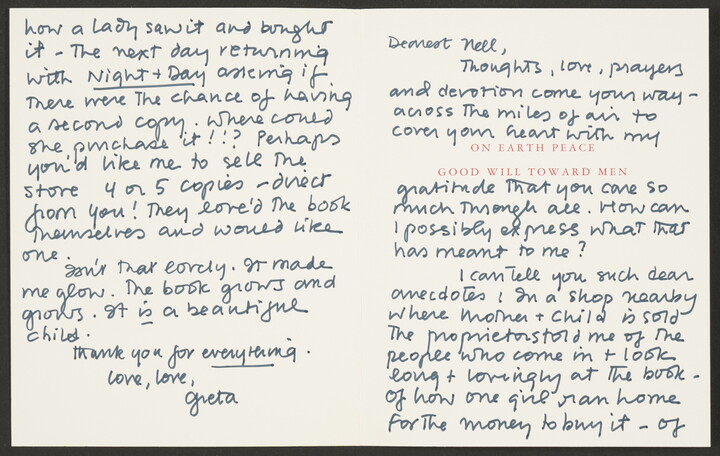 Dearest Nell,
Thoughts, love, prayers
and devotion come your way –
across the miles of air to
cover your heart with my
ON EARTH PEACE
GOOD WILL TOWARD MEN
gratitude that you care so
much through all. How can
I possibly express what that
has meant to me?
I can tell you such dear
anecdotes! In a shop nearby
where Mother + Child is sold
the proprietors told me of the
people who come in + look
long + lovingly at the book –
of how one girl ran home
for the money to buy it – of
how a lady saw it and bought
it – The next day returning
with Night + Day asking if
there were the chance of having
a second copy. Where could
she purchase it!!? Perhaps
you'd like me to sell the
store 4 or 5 copies – direct
from you! They love'd the book
themselves and would like
one.
Isn't that lovely. It made
me glow. The book grows and
grows. It is a beautiful
child.
Thank you for everything.
Love, love,
Greta